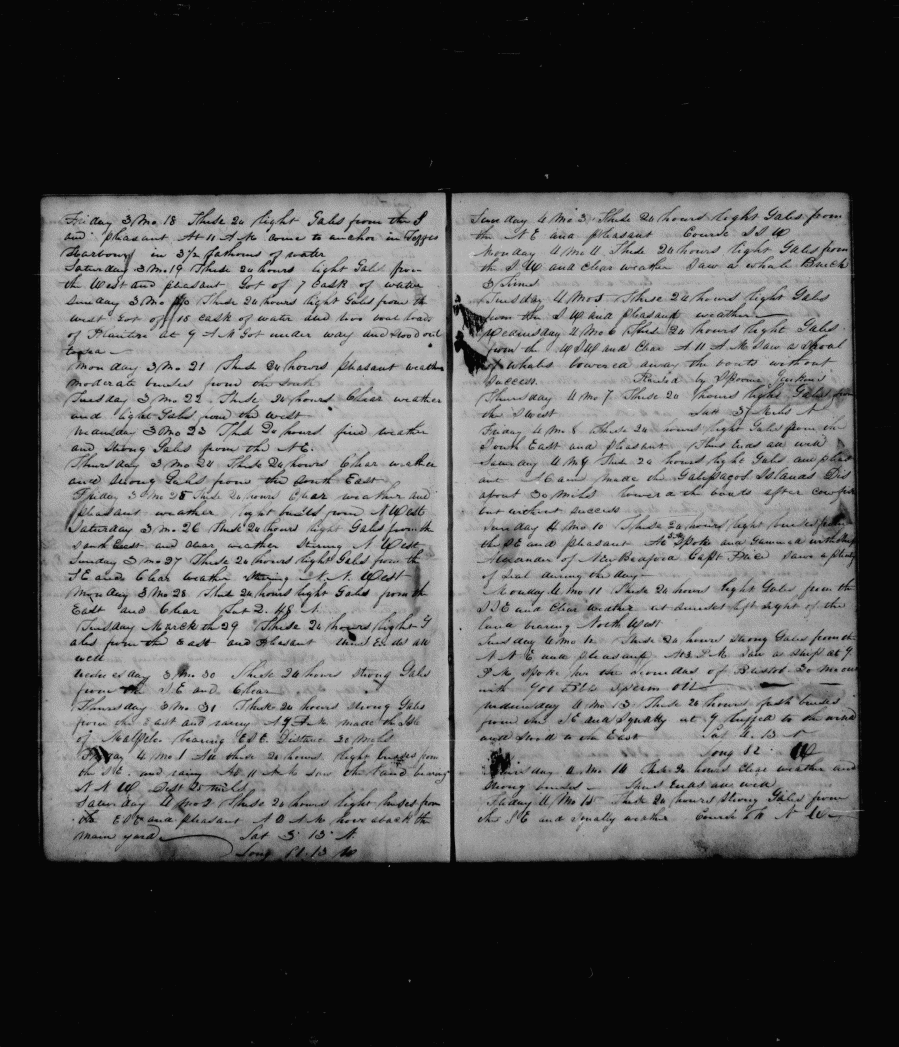 Friday 3 Mo 18 These 24 light Gales from the S
and pleasant At 11 A M came to anchor in
Harbour in 3 1/2 fathoms of water
Saturday 3 Mo 19 These 24 hours light Gales from
the West and pleasant Got of 7 Cask of water
Sunday 3 Mo 20 These 24 hours light Gales from the
west Got of 15 cask of water and two boat loads
of at 9 A M Got under way and stood out
to sea
Monday 3 Mo 21 These 24 hours pleasant weather
moderate breeses from the South
Tuesday 3 Mo 22 These 24 hours Clear weather
and light Gales from the west
3 Mo 23 These 24 hours fine weather
and strong Gales from the N E.
Thursday 3 Mo 24 These 24 hours Clear weather
and strong Gales from the South East
Friday 3 Mo 25 These 24 hours Clear weather and
pleasant weather light breeses from N West
Saturday 3 Mo 26 These 24 hours light Gales from the
South East and clear weather N West
Sunday 3 Mo 27 These 24 hours light Gales from the
S E and Clear weather N. N. West
Monday 3 Mo 28 These 24 hours light Gales from the
East and Clear Lat 2. 48 N
Tuesday March the 29 These 24 hours light G
ales from the East and Pleasant Ends all
well
3 Mo 30 These 24 hours strong Gales
from the S. E and Clear
Thursday 3 Mo 31 These 24 hours strong Gales
from the East and rainy made the Isle
of Malpelo bearing E S E. Distance 20 Miles
Friday 4 Mo 1 All these 24 hours light breeses from
the S E. and rainy At 11 A M saw the land bearing
N N W Dist 20 miles
Saturday 4 Mo 2 These 24 hours light breses from
the E S E and pleasant hove aback the
main yard Lat 3. 13 N
Long 81. 13 W
Sunday 4 Mo 3 These 24 hours light Gales from
the N E and pleasant Course S S W
Monday 4 Mo 4 These 24 hours light Gales from
the S W and Clear weather Saw a whale Breach
3 times
Tuesday 4 Mo 5 These 24 hours light Gales
from the S W and pleasant weather
Wednesday 4 Mo 6 These 24 hours light Gales
from the W S W and Clear A 11 A. M Saw a Shoal
of whales lowered away the boats without
Success. by
Thursday 4 Mo 7 These 24 hours light Gales from
the S West Lat
Friday 4 Mo 8 These 24 hours light Gales from the
South East and pleasant Thus Ends all well
Saturday 4 Mo 9 These 24 hours light Gales and pleas
ant made the Galepacos Islands Dis
about 30 miles lowered the boats after
but without success
Sunday 4 Mo 10 These 24 hours light breeses from
the S E and pleasant Spoke and Gammed with Ship
Alexander of New Bedford Capt saw a plenty
of during the day
Monday 4 Mo 11 These 24 hours light Gales from the
S S E and Clear weather at sunset left sight of the
land bearing North West
Tuesday 4 Mo 12 These 24 hours Strong Gales from the
N N E and pleasant At 3 P. M. saw a ship at 9
P M spoke her the of Bristol 30 Months
with 900 Bbls Sperm Oil
Wednesday 4 Mo 13 These 24 hours fresh breeses
from the S E and Squally at 9 luffed to the wind
and stood to the East Lat 4. 13 N
Long 82 W
Thursday 4 Mo 14 These 24 hours Clear weather and
Strong breeses Thus Ends all well
Friday 4 Mo 15 These 24 hours Strong Gales from
the S E and squally weather Course